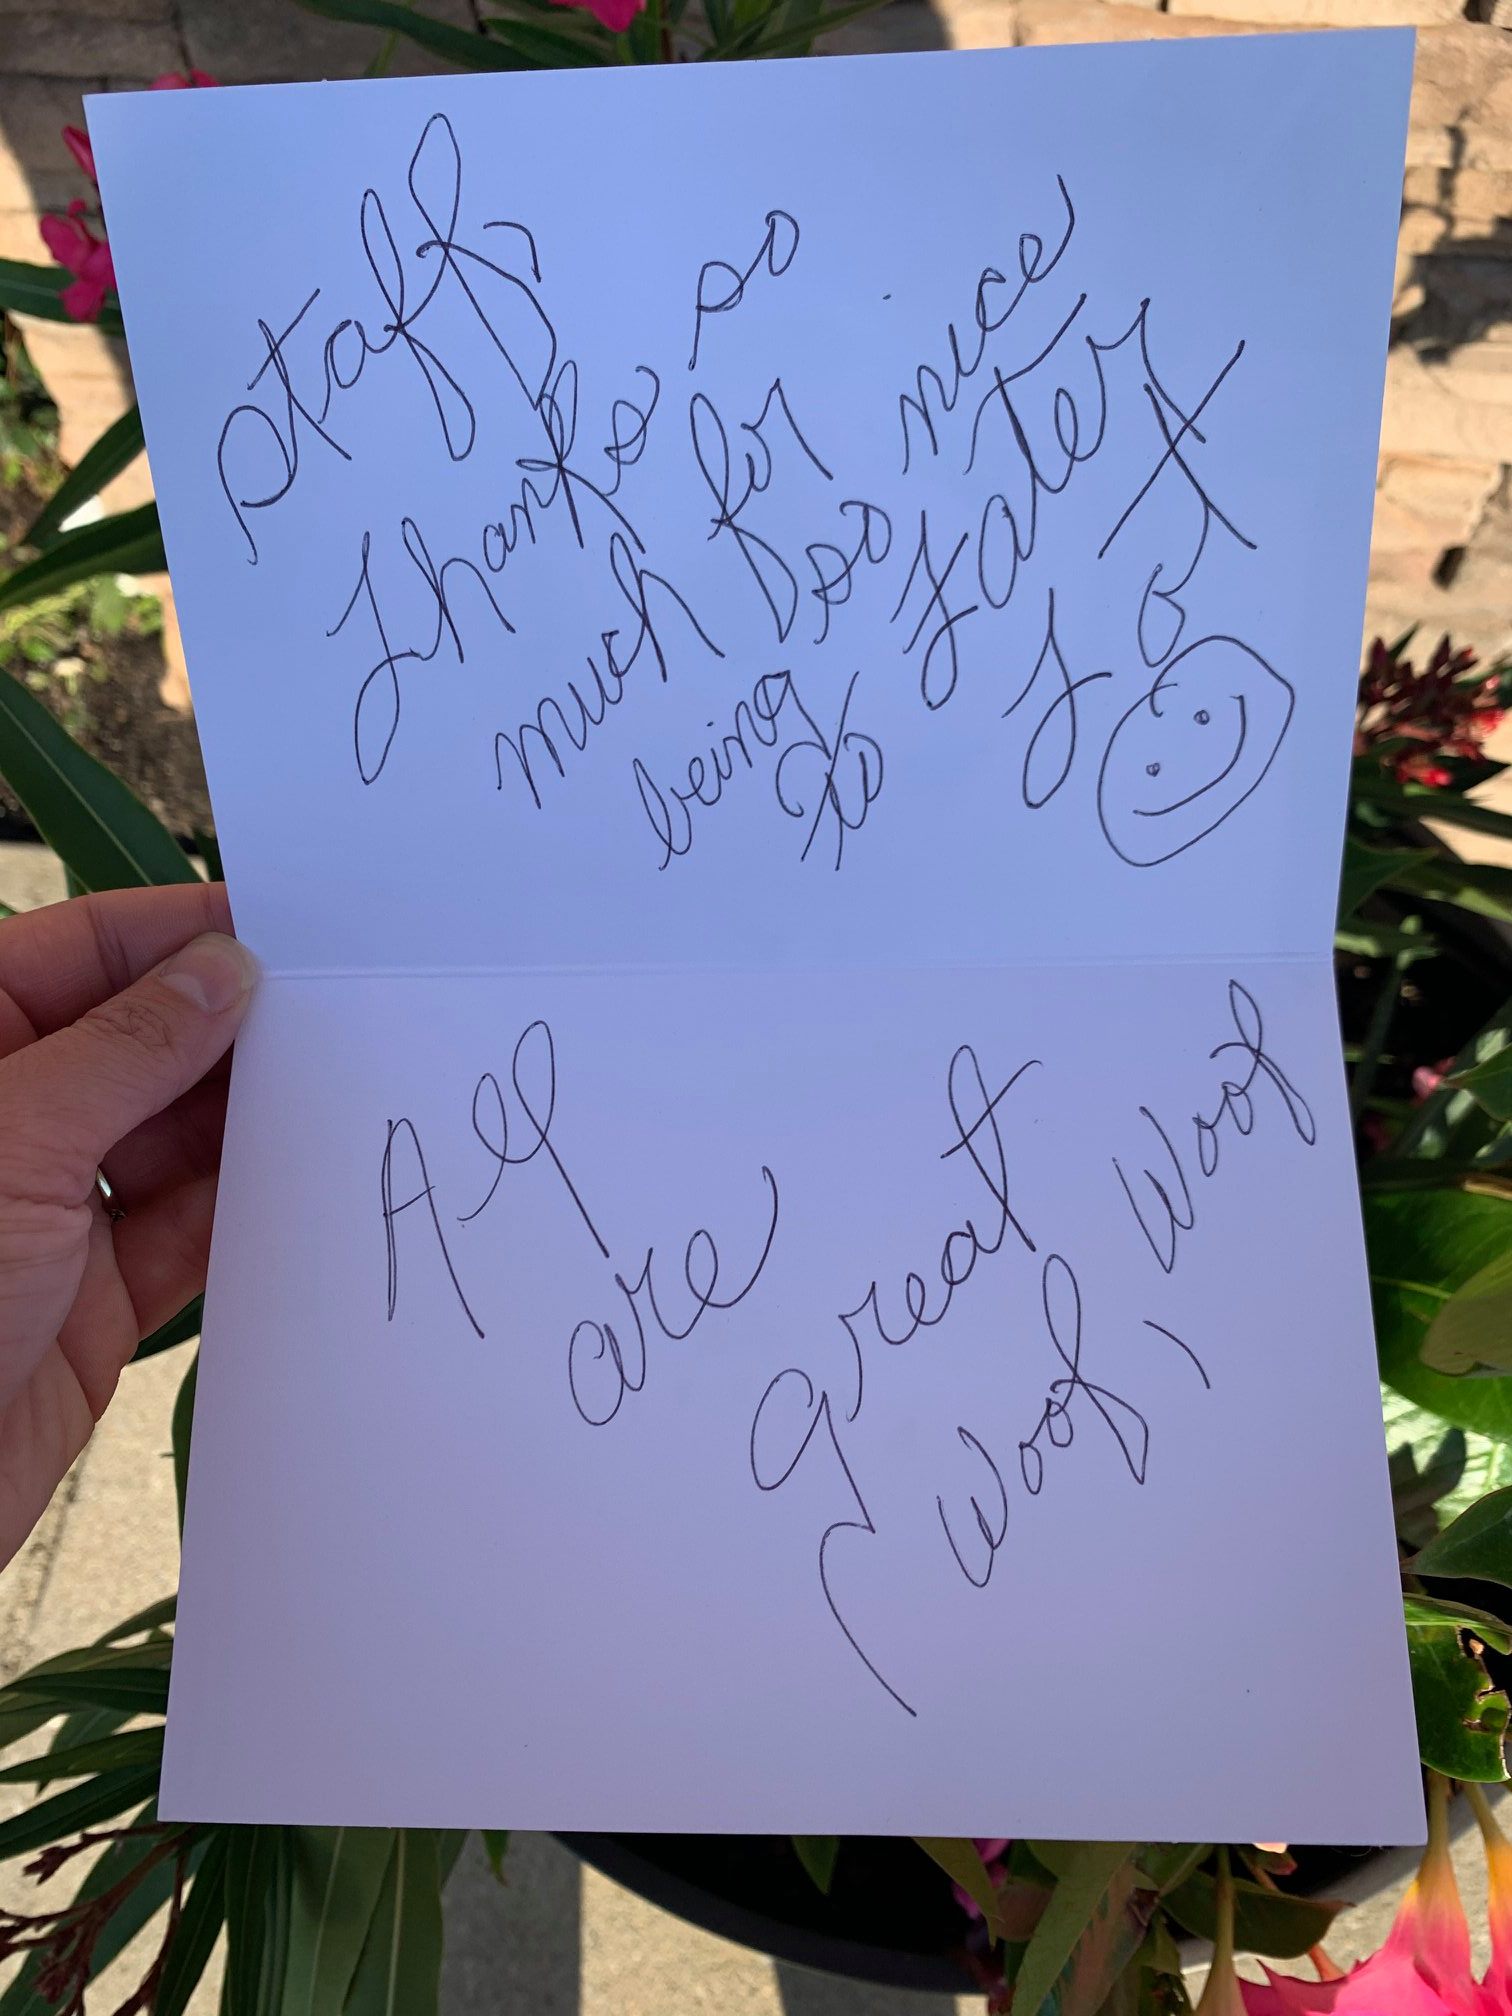 Staff,
Thanks so
much for
being so nice
to Tater
Tot
All
are
great
Woof, Woof